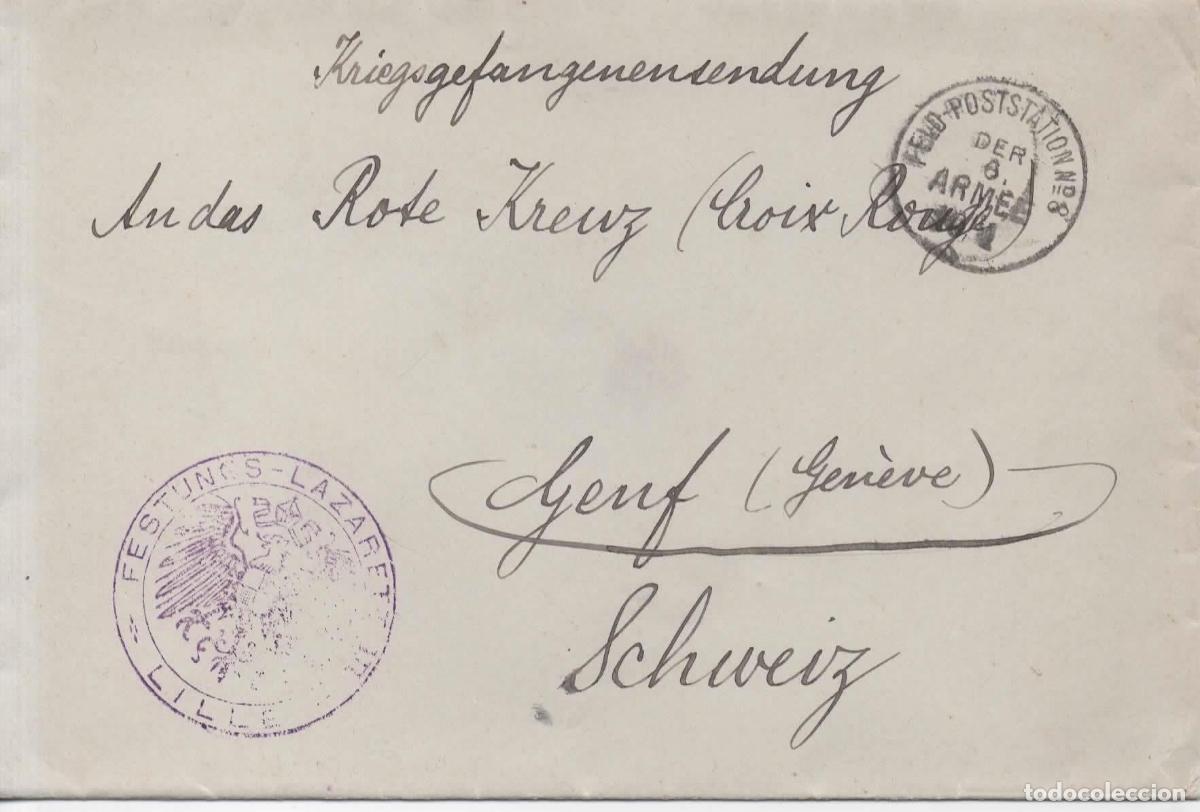 Kriegsgefangenensendung
FELD-POSTSTATION Nº 8
DER
6.
ARMEE
An das Rote Kreuz (Croix Rouge)
Genf (Genève)
Schweiz
FESTUNGS-LAZARETT IN
LILLE
todocoleccion